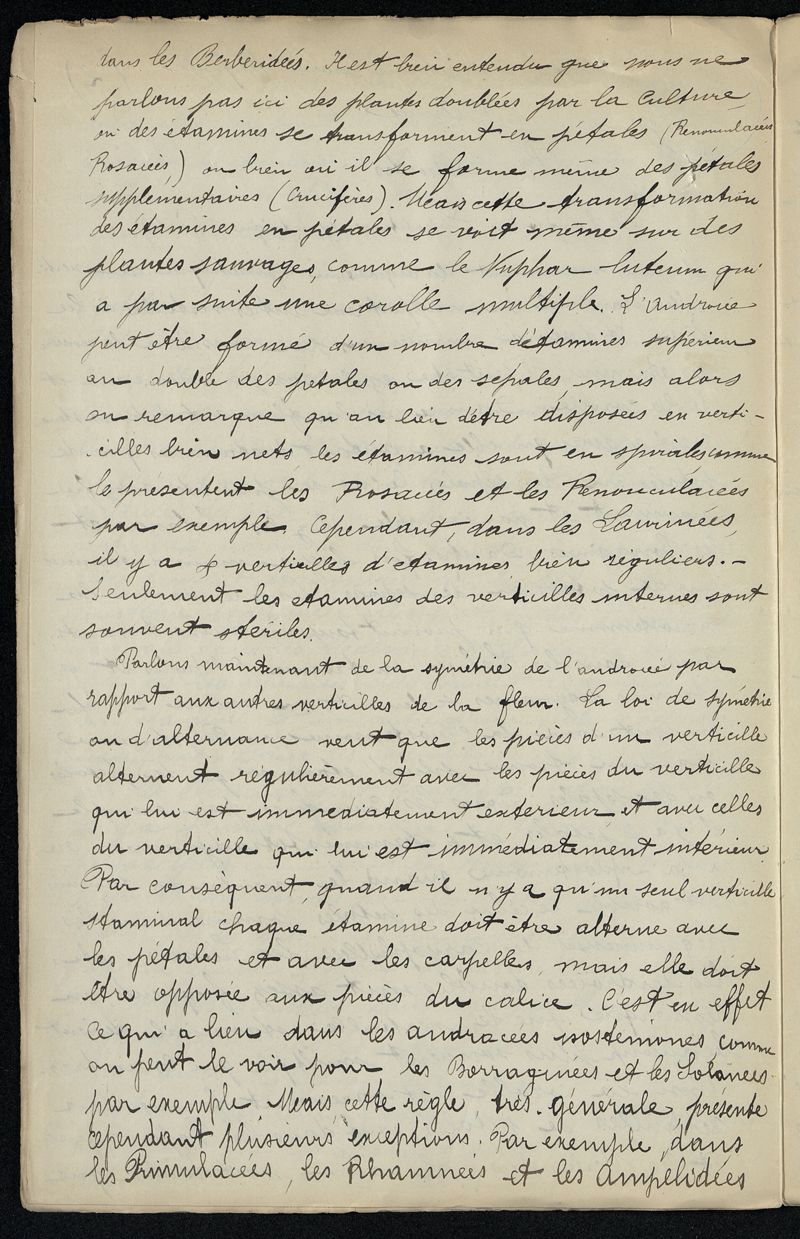 dans les Berberidées. Il est bien entendu que nous ne
parlons pas ici des plantes doublées par la culture
où des étamines se transforment en pétales (Renonculacées
Rosacées,) ou bien où il se forme même des pétales
supplémentaires (Crucifères). Mais cette transformation
des étamines en pétales se voit même sur des
plantes sauvages, comme le Nuphar luteum qui
a par suite une corolle multiple. L'Androcée
peut être formé d'un nombre d'étamines supérieur
au double des petales ou des sépales, mais alors
on remarque qu'au lieu d'être disposées en verti-
cilles bien nets les étamines sont en spirales comme
le présentent les Rosacées et les Renonculacées
par exemple. Cependant, dans les Laurinées,
il y a verticilles d'etamines bien réguliers. -
Seulement les etamines des verticilles internes sont
souvent stériles.
Parlons maintenant de la symétrie de l'androcée par
rapport aux autres verticilles de la fleur. La loi de symétrie
ou d'alternance veut que les pièces d'un verticille
alternent régulièrement avec les pièces du verticille
qui lui est immediatement exterieur et avec celles
du verticille qui lui est immédiatement intérieur
Par conséquent, quand il n'y a qu'un seul verticille
staminal chaque étamine doit être alterne avec
les pétales et avec les carpelles, mais elle doit
être opposée aux pièces du calice. C'est en effet
ce qui a lieu dans les andracées isostemones, comme
on peut le voir pour les Borraginées et les Solanées
par exemple. Mais cette règle, très-générale, présente
cependant plusieurs exceptions. Par exemple, dans
les Primulacées, les Rhamnées et les Ampélidées